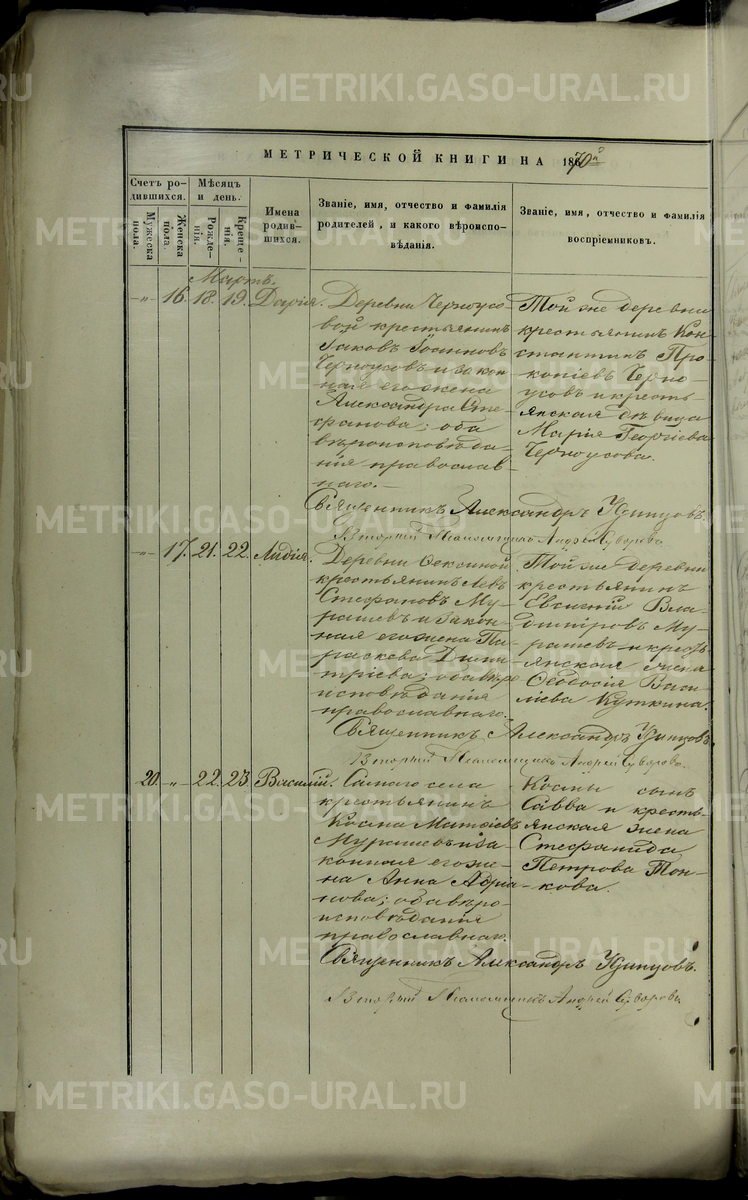 METRIKI.GASO-URAL.RU METRIKI.GASO-URAL.RU
МЕТРИЧЕСКОЙ КНИГИ НА 1870й
Счетъ родившихся.
Мужеска пола.
Женска пола.
Мѣсяцъ и день.
Рожденія.
Крещенія.
Имена родившихся.
Званіе, имя, отчество и фамилія
родителей, и какого вѣроиспо-
вѣданія.
Званіе, имя, отчество и фамилія
воспріемниковъ.
Мартъ.
-„- 16. 18. 19. Дарія.
Деревни Черноусо-
вой крестьянинъ
Іаковъ Іоанновъ
Черноусовъ и закон-
ная его жена
Александра Сте-
фанова; оба
вѣроисповѣда-
нія православ-
наго.
Той же деревни
крестьянинъ Кон-
стантинъ Про-
копіевъ Черно-
усовъ и кресть-
янская дѣвица
Марія Георгіева
Черноусова.
Священникъ Александръ Удинцовъ.
Вторый Псаломщикъ Андрей Суворовъ.
-„- 17. 21. 22. Лидія.
Деревни
крестьянинъ Левъ
Стефановъ Му-
рашевъ и закон-
ная его жена Па-
раскева Дими-
тріева; оба вѣро-
исповѣданія
православнаго.
Той же деревни
крестьянинъ
Евгеній Вла-
диміровъ Му-
рашевъ и кресть-
янская жена
Ѳеодосія Васи-
ліева Куткина.
Священникъ Александръ Удинцовъ.
Вторый Псаломщикъ Андрей Суворовъ.
20. „ 22. 23. Василій.
Самаго села
крестьянинъ
Косма Матѳіевъ
Мурашевъ и за-
конная его же-
на Анна Адріа-
нова; оба вѣро-
исповѣданія
православнаго.
Космы сынъ
Савва и кресть-
янская жена
Стефанида
Петрова Тон-
кова.
Священникъ Александръ Удинцовъ.
Вторый Псаломщикъ Андрей Суворовъ.